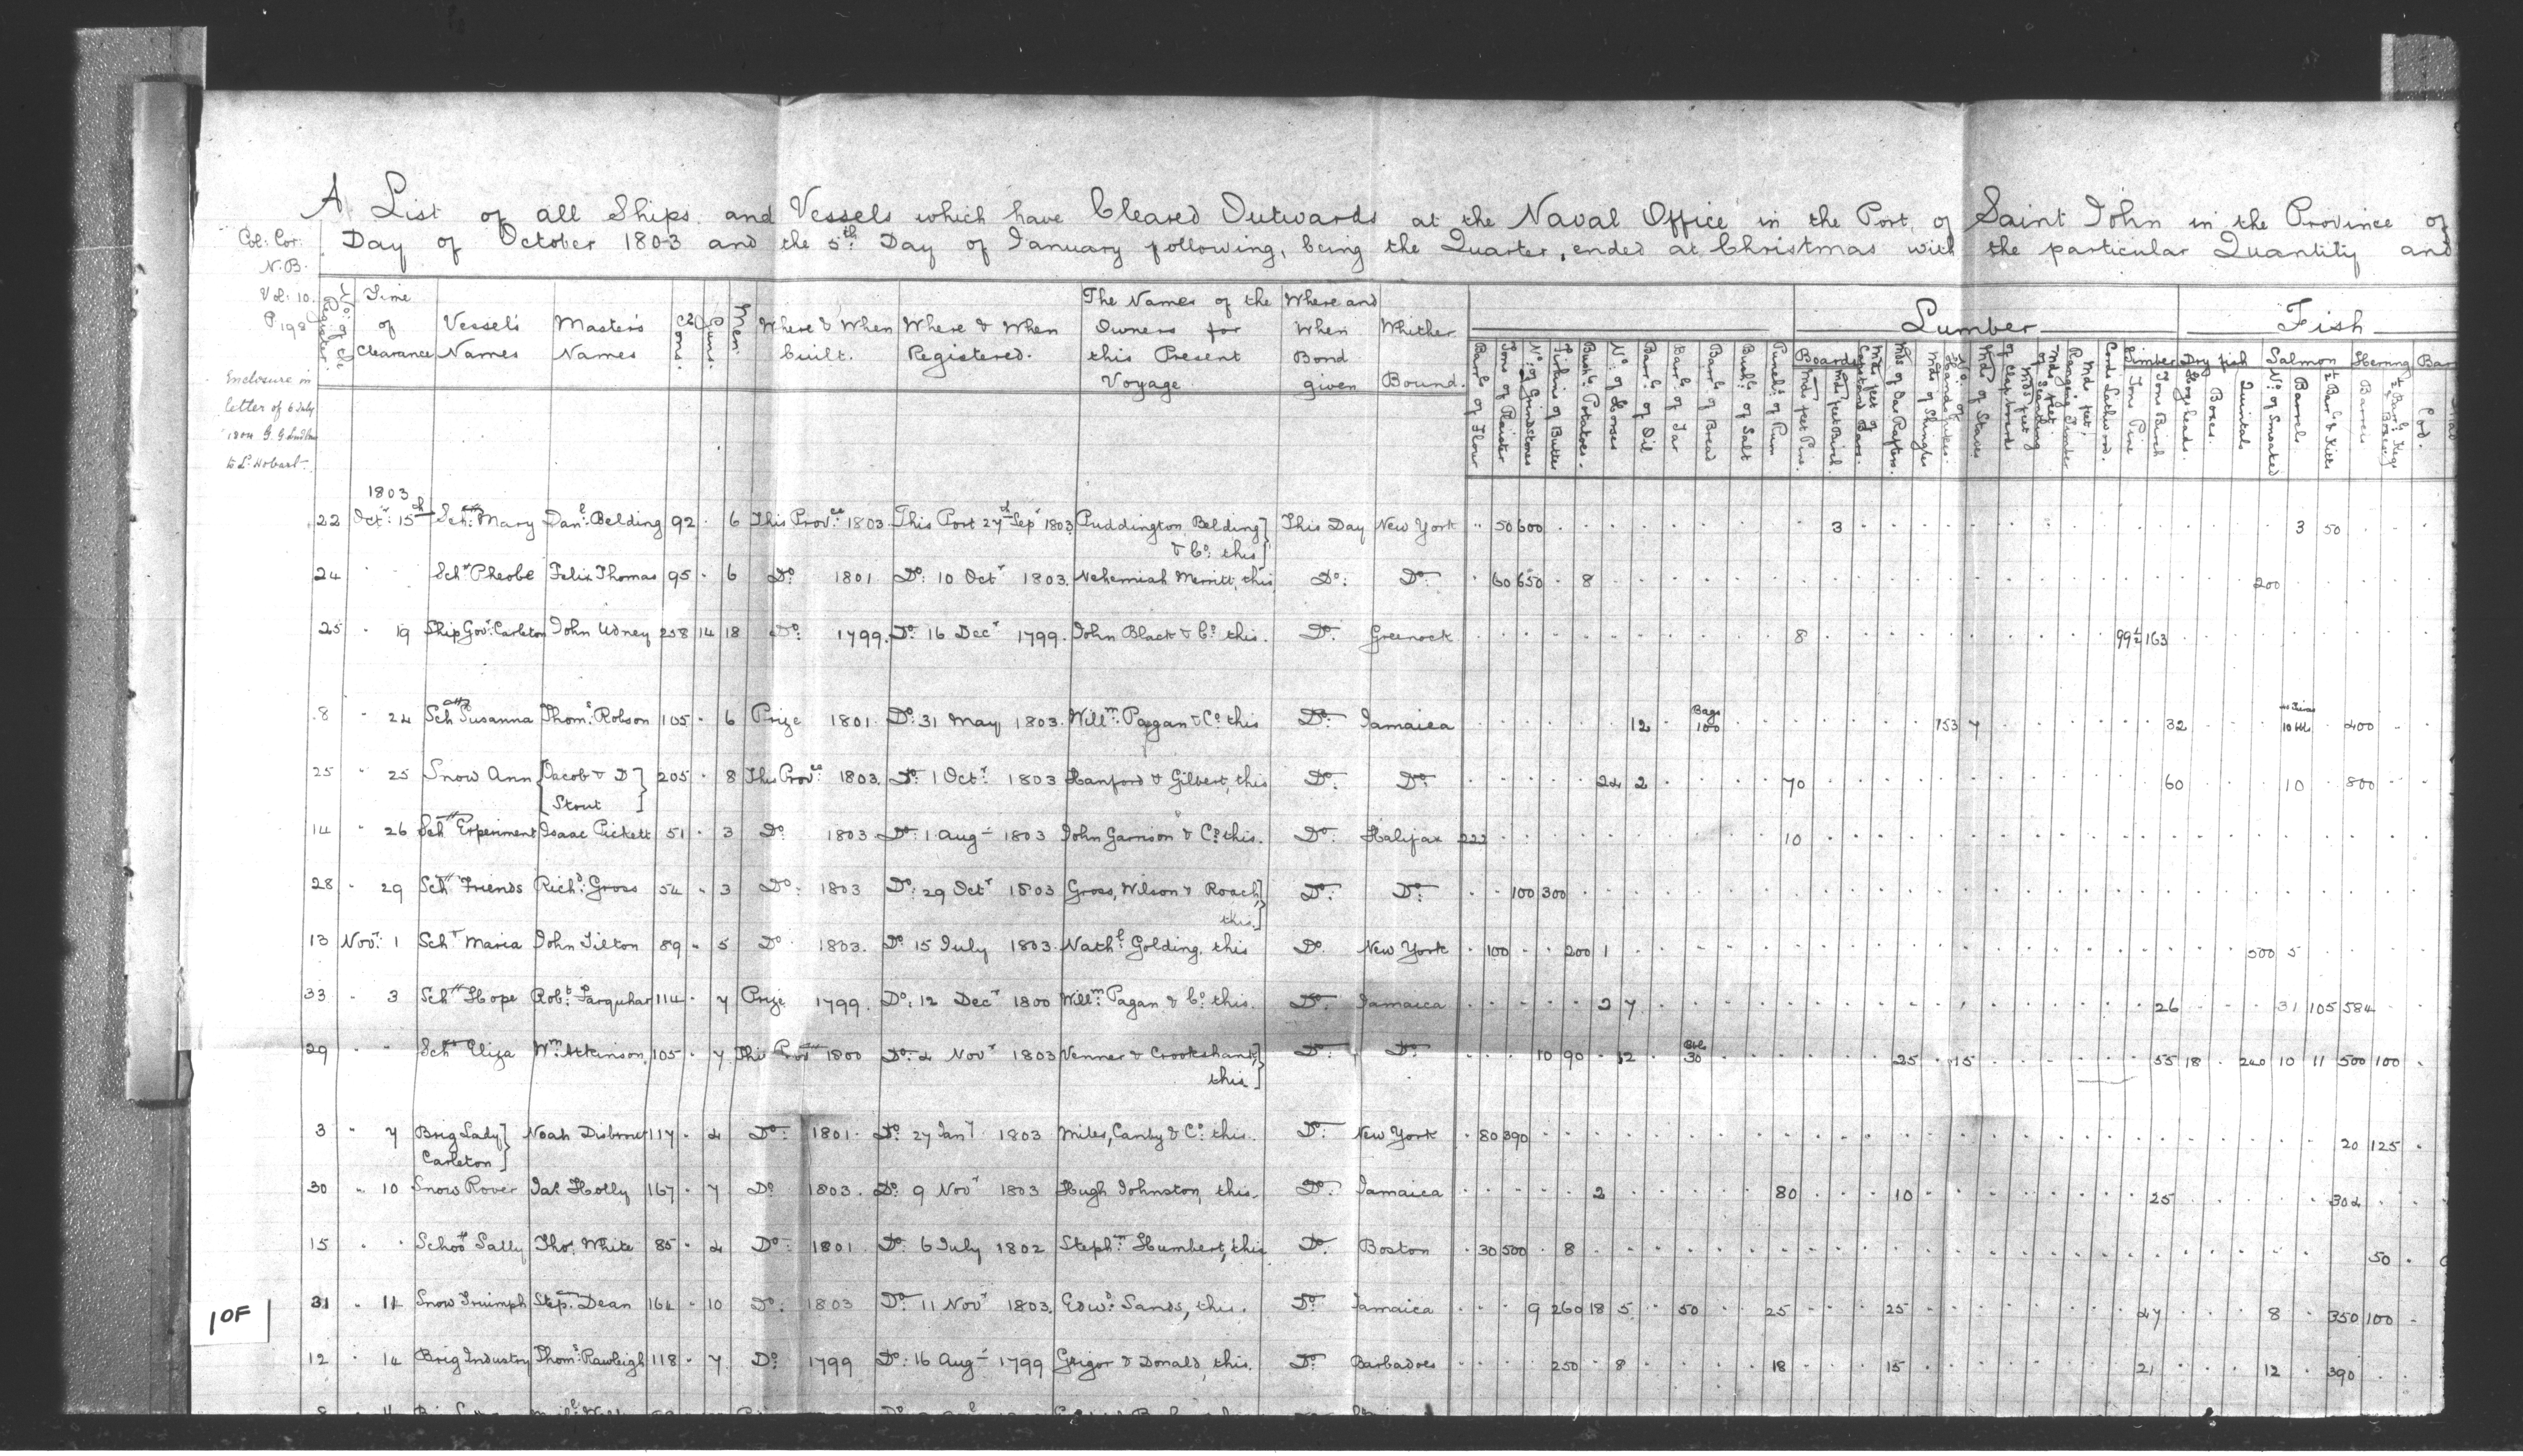 A List of all Ships and Vessels which have Cleared Outwards at the Naval Office in the Port of Saint John in the Province of
Day of October 1803 and the 5th Day of January following, being the Quarter, ended at Christmas with the particular Quantity and
Col: Cor:
N.B.
Vol: 10.
P 198
Enclosure in
letter of 6 July
1804 G. G. Ludlow
to Ld. Hobart
No: of ye Register.
Time of Clearance
Vessel's Names
Master's Names
Tons.
Guns.
Men.
Where & When built.
Where & When Registered.
The Names of the Owners for this Present Voyage
Where and When Bond given
Whither Bound.
Lumber
Fish
Barls of Flour
Tons of Plaister
No: of Grindstones
Firkins of Butter
Bushs Potatoes.
No: of Horses
Barrs of Oil
Barls of Tar
Barls of Bread
Bushs of Salt
Punchs of Rum
Boards
Mds feet Pine.
Mds feet Birch.
Mds of Oar Rafters.
Mds of Shingles
No: of Handspikes.
Mds of Staves
Mds feet of Scantling
Mds feet Ranging Timber
Cords Lathwood.
Timber
Tons Pine
Tons Birch
Dry Fish
Hogsheads.
Boxes.
Quintals
Salmon
No: of Smoaked
Barrels
½ Barls & Kitts
Herring
Barrels
½ Barls Kegs & Boxes
Bar
Cod.
1803
22 Octr 15th Schr Mary Danl: Belding 92 . 6 This Provce 1803 This Port 27th Sepr 1803 Puddington, Belding & Co: this This Day New York .. 50 600 3 3 50
24 Schr Pheobe Felix Thomas 95 . 6 Do 1801 Do: 10 Octr 1803. Nehemiah Merritt, this Do: Do 60 650 8 200
25 19 Ship Govr: Carleton John Udney 258 14 18 Do 1799. Do 16 Decr 1799. John Black & Co this. Do Greenock 8 99½ 163
8 24 Schr Susanna Thoms Robson 105 . 6 Prize 1801. Do: 31 May 1803. Willm: Pagan & Co this Do: Jamaica 12 Bags 100 153 7 32 400
25 25 Snow Ann Jacob & D Stout 205 . 8 This Provce 1803. Do 1 Octr 1803 Hanford & Gilbert, this Do Do 24 2 70 60 10 800
14 26 Schr Experiment Isaac Pickett 51 . 3 Do 1803 Do: 1 Augt 1803 John Garrison & Co this. Do Halifax 222 10
28 29 Schr Friends Richd: Gross 54 . 3 Do: 1803 Do: 29 Octr 1803 Gross, Wilson & Roach, this. Do: Do 100 300
13 Novr: 1 Schr Maria John Tilton 89 . 5 Do 1803. Do 15 July 1803. Nathl Golding, this Do. New York 100 200 1 500 5
33 3 Schr Hope Robt: Farquhar 114 . 7 Prize 1799. Do: 12 Decr 1800 Willm: Pagan & Co: this. Do: Jamaica 2 7 26 31 105 584
29 Schr Eliza Wm: Atkinson, 105 . 7 This Provce 1800 Do: 4 Novr 1803 Venner & Crookshank, this Do: Do 10 90 12 30 25 15 55 18 240 10 11 500 100
3 7 Brig Lady Carleton Noah Disbrow 117 . 4 Do: 1801. Do: 27 Jany 1803 Miles, Canby & Co: this. Do: New York 80 390 20 125
30 10 Snow Rover Jas Holly 167 . 7 Do 1803. Do: 9 Novr 1803 Hugh Johnston, this. Do: Jamaica 2 80 10 25 304
15 Schor Sally Thos. White 85 . 4 Do: 1801. Do: 6 July 1802 Stephn Humbert, this Do. Boston 30 500 8 50
31 11 Snow Triumph Step: Dean 164 . 10 Do: 1803 Do: 11 Novr 1803. Edwd: Sands, this. Do: Jamaica 9 260 18 5 50 25 25 47 8 350 100
12 14 Brig Industry Thoms: Rawleigh 118 . 7 Do 1799 Do: 16 Augt 1799 Grigor & Donald, this. Do: Barbadoes 250 8 18 15 21 12 390
1 OF